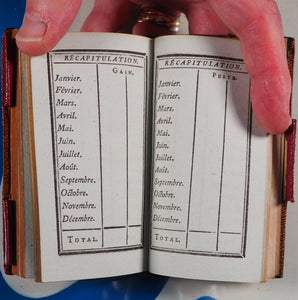 RÉCAPITULATION.
GAIN.
Janvier.
Février.
Mars.
Avril.
Mai.
Juin.
Juillet.
Août.
Septembre.
Octobre.
Novembre.
Décembre.
TOTAL.
RÉCAPITULATION.
PERTE.
Janvier.
Février.
Mars.
Avril.
Mai.
Juin.
Juillet.
Août.
Septembre.
Octobre.
Novembre.
Décembre.
TOTAL.